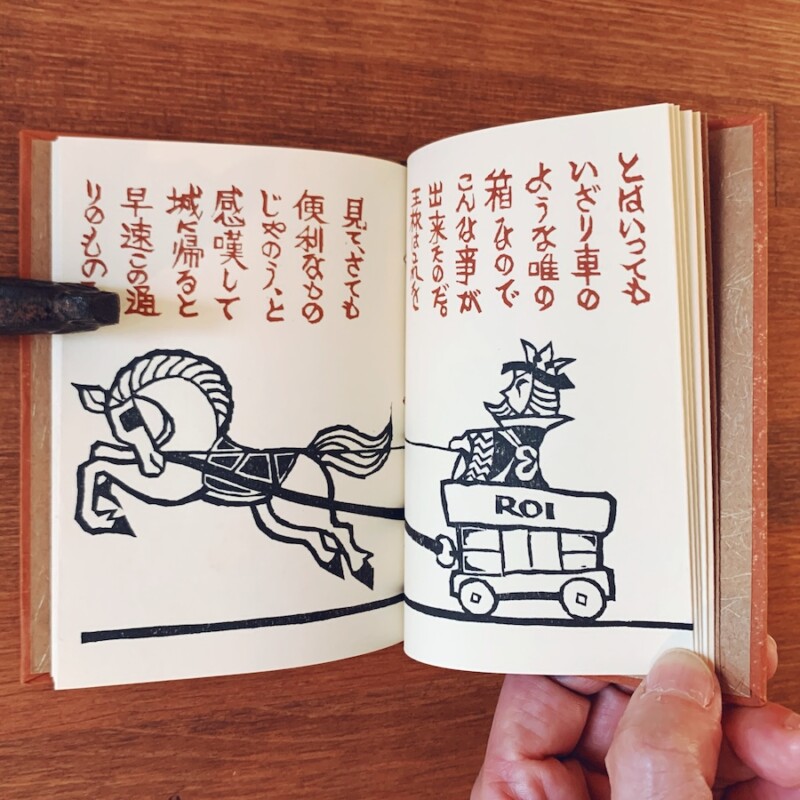 とはいっても
いざり車の
ような唯の
箱なので
こんな事が
出来たのだ。
王様はこれを
見て、さても
便利なもの
じゃのう、と
感嘆して
城に帰ると
早速この通
りのもの
ROI